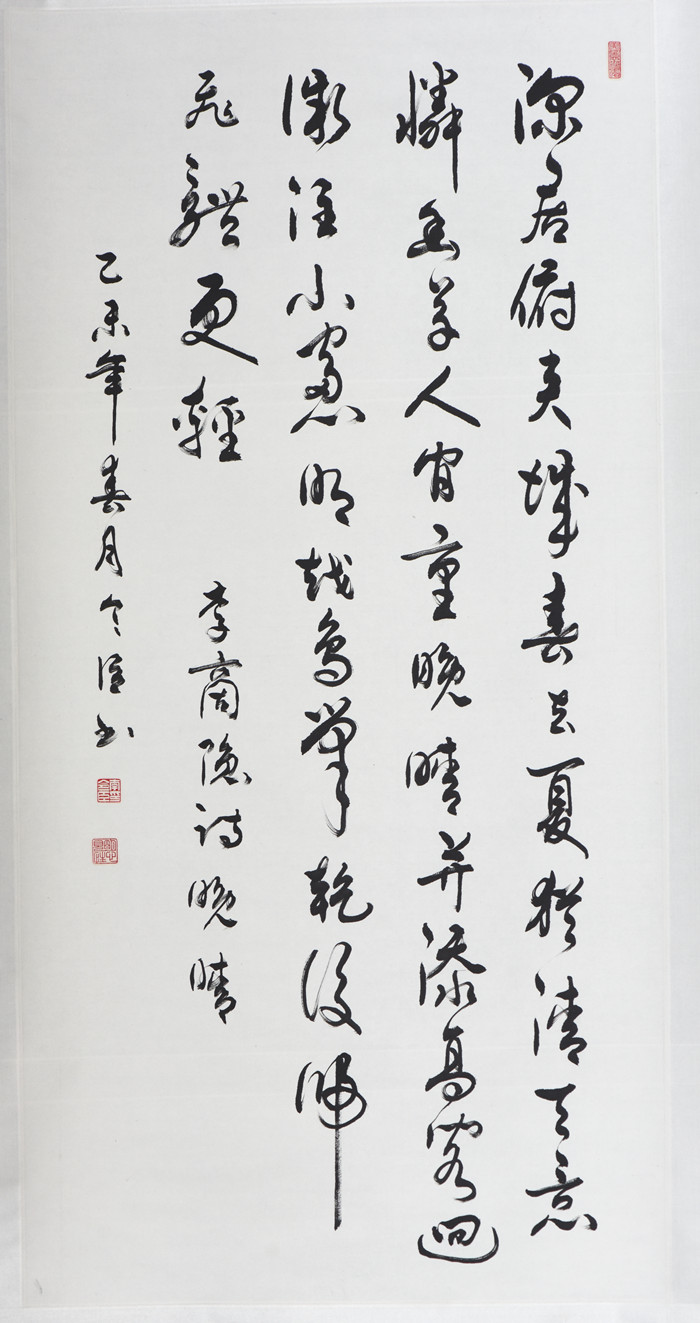 深居俯夾城春去夏猶清天意
憐幽草人間重晚晴并添高閣迥
微注小窻明越鳥巢乾後歸
飛體更輕 李商隱詩晚晴
乙未年春月令書